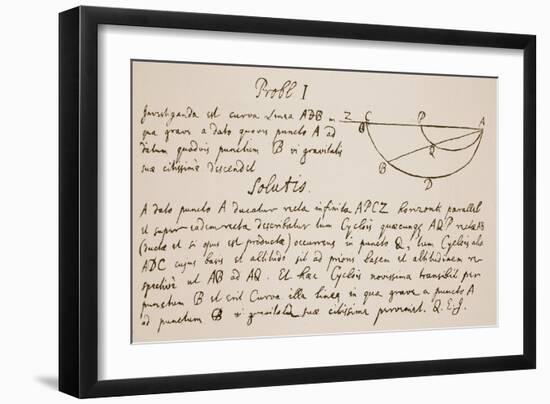 Probl I
Investiganda est curva Linea ADB in
qua grave a dato quovis puncto A ad
datum quodvis punctum B vi gravitatis
suæ citissime descendet
Z C P A
Q
B
D
Solutio.
A dato puncto A ducatur recta infinita APCZ horizonti parallela
et super eadem recta describatur tum Cyclois quæcunq AQP rectæ AB
(ductæ et si opus est productæ) occurrens in puncto Q, tum Cyclois alia
ADC cujus basis et altitudo sit ad prioris basem et altitudinem re-
spective ut AB ad AQ. Et hæc Cyclois novissima transibit per
punctum B et erit Curva illa linea in qua grave a puncto A
ad punctum B vi gravitatis suæ citissime perveniet. Q.E.I.